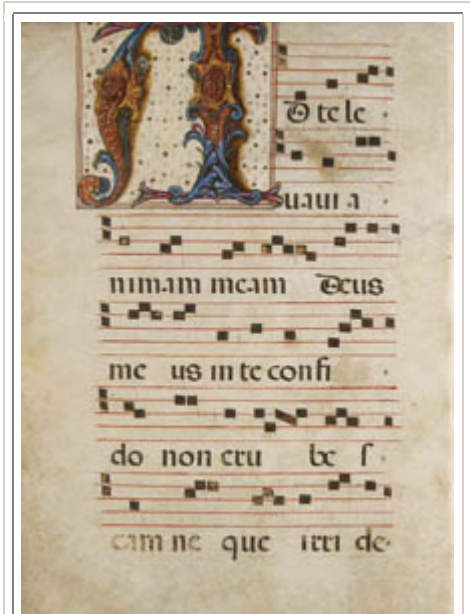 A
D te le
uaui a
nimam meam Deus
me us in te confi
do non eru be s
cam ne que irri de